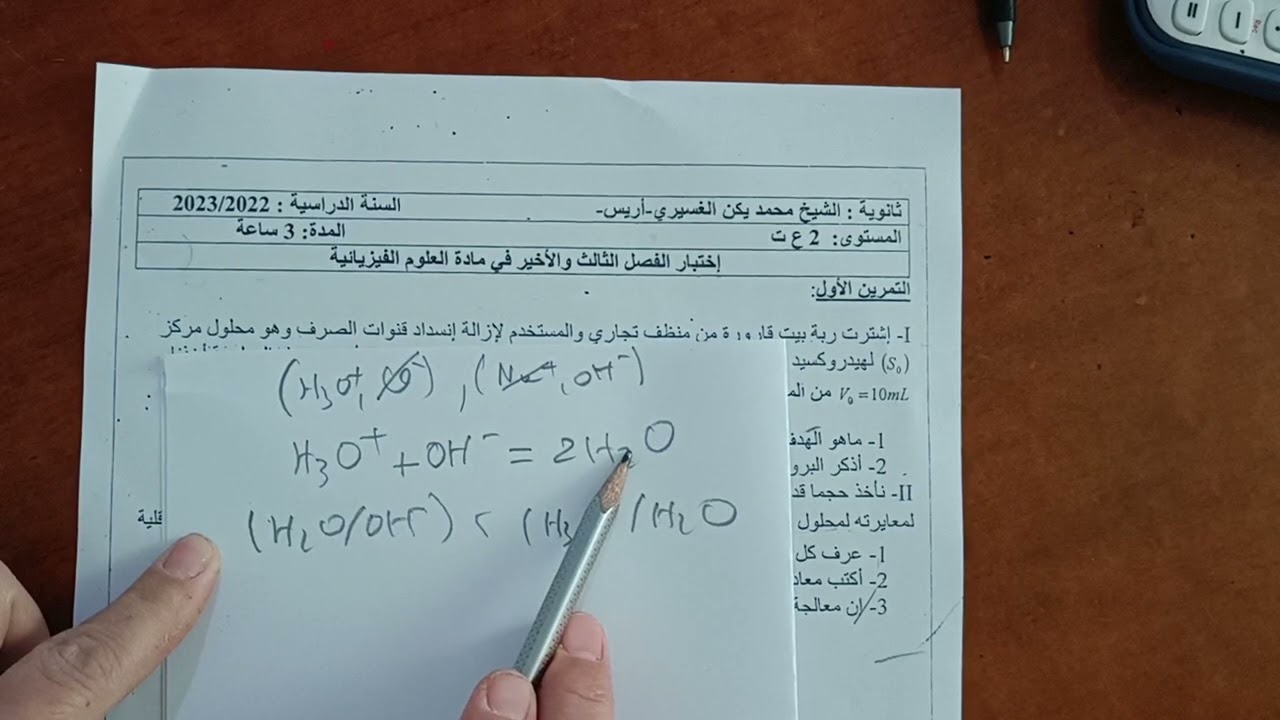 ثانوية : الشيخ محمد يكن الغسيري-أريس- السنة الدراسية : 2023/2022
المستوى: 2 ع ت المدة: 3 ساعة
إختبار الفصل الثالث والأخير في مادة العلوم الفيزيائية
التمرين الأول:
I- إشترت ربة بيت قارورة من منظف تجاري والمستخدم لإزالة إنسداد قنوات الصرف وهو محلول مركز
(S₀) لهيدروكسيد
V₀ = 10mL من
1- ماهو الهدف
2- أذكر
II- نأخذ حجما
لمعايرته لمحلول
1- عرف كل
2- أكتب
3- إن معالجة
(H₃O⁺, Cl⁻), (Na⁺, OH⁻)
H₃O⁺ + OH⁻ = 2H₂O
(H₂O/OH⁻) < (H₃ /H₂O